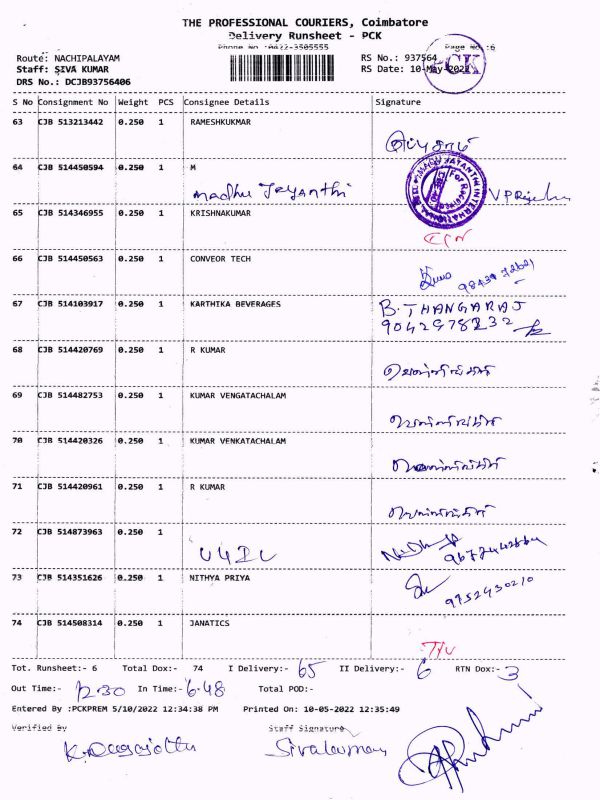 THE PROFESSIONAL COURIERS, Coimbatore
Delivery Runsheet - PCK
Phone No :0422-3505555 Page No.:6
Route: NACHIPALAYAM RS No.: 937564
Staff: SIVA KUMAR RS Date: 10-May-2022
DRS No.: DCJB93756406
S No Consignment No Weight PCS Consignee Details Signature
63 CJB 513213442 0.250 1 RAMESHKUKMAR
64 CJB 514450594 0.250 1 M
Madhu Jeyanthi
65 CJB 514346955 0.250 1 KRISHNAKUMAR
66 CJB 514450563 0.250 1 CONVEOR TECH
67 CJB 514103917 0.250 1 KARTHIKA BEVERAGES B. THANGARAJ
9042978232
68 CJB 514420769 0.250 1 R KUMAR
69 CJB 514482753 0.250 1 KUMAR VENGATACHALAM
70 CJB 514420326 0.250 1 KUMAR VENKATACHALAM
71 CJB 514420961 0.250 1 R KUMAR
72 CJB 514873963 0.250 1
73 CJB 514351626 0.250 1 NITHYA PRIYA
9752430210
74 CJB 514508314 0.250 1 JANATICS
Tot. Runsheet:- 6 Total Dox:- 74 I Delivery:- 65 II Delivery:- 6 RTN Dox:- 3
Out Time:- 12-30 In Time:- 6-48 Total POD:-
Entered By :PCKPREM 5/10/2022 12:34:38 PM Printed On: 10-05-2022 12:35:49
Verified By Staff Signature
Sivakumar